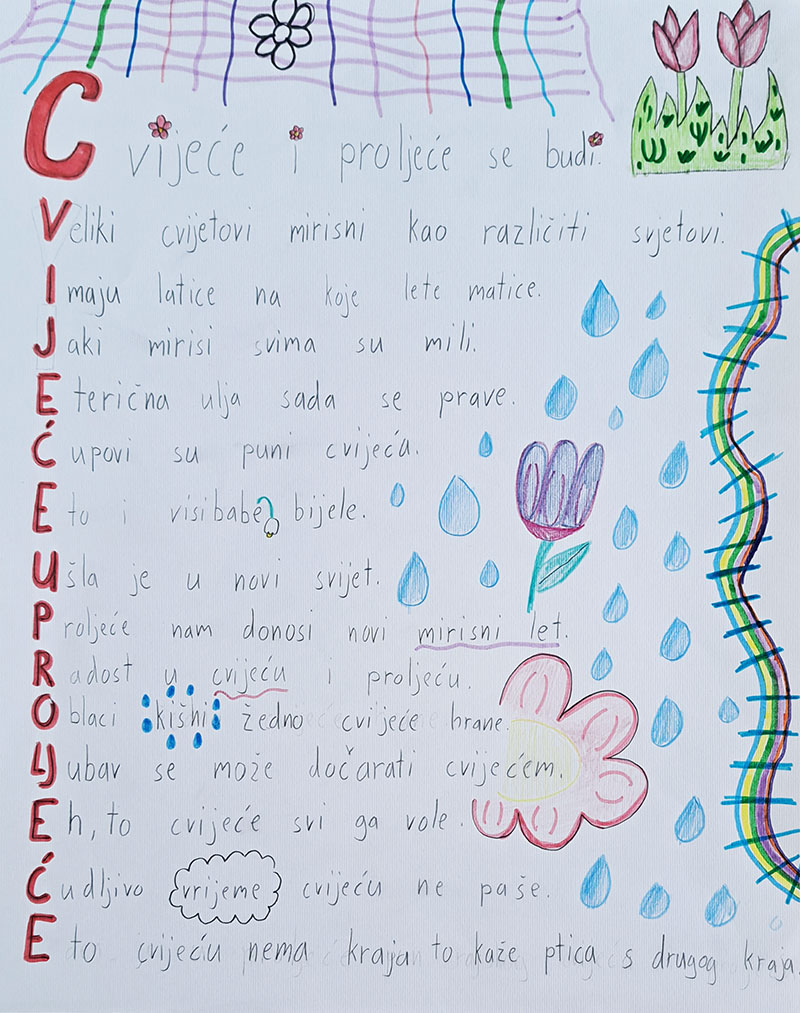 Cvijeće i proljeće se budi.
Veliki cvijetovi mirisni kao različiti svjetovi.
Imaju latice na koje lete matice.
Jaki mirisi svima su mili.
Eterična ulja sada se prave.
Ćupovi su puni cvijeća.
Eto i visibabe bijele.
Ušla je u novi svijet.
Proljeće nam donosi novi mirisni let.
Radost u cvijeću i proljeću.
Oblaci kišni žedno cvijeće hrane.
Ljubav se može dočarati cvijećem.
Eh, to cvijeće svi ga vole.
Ćudljivo vrijeme cvijeću ne paše.
Eto cvijeću nema kraja to kaže ptica s drugog kraja.